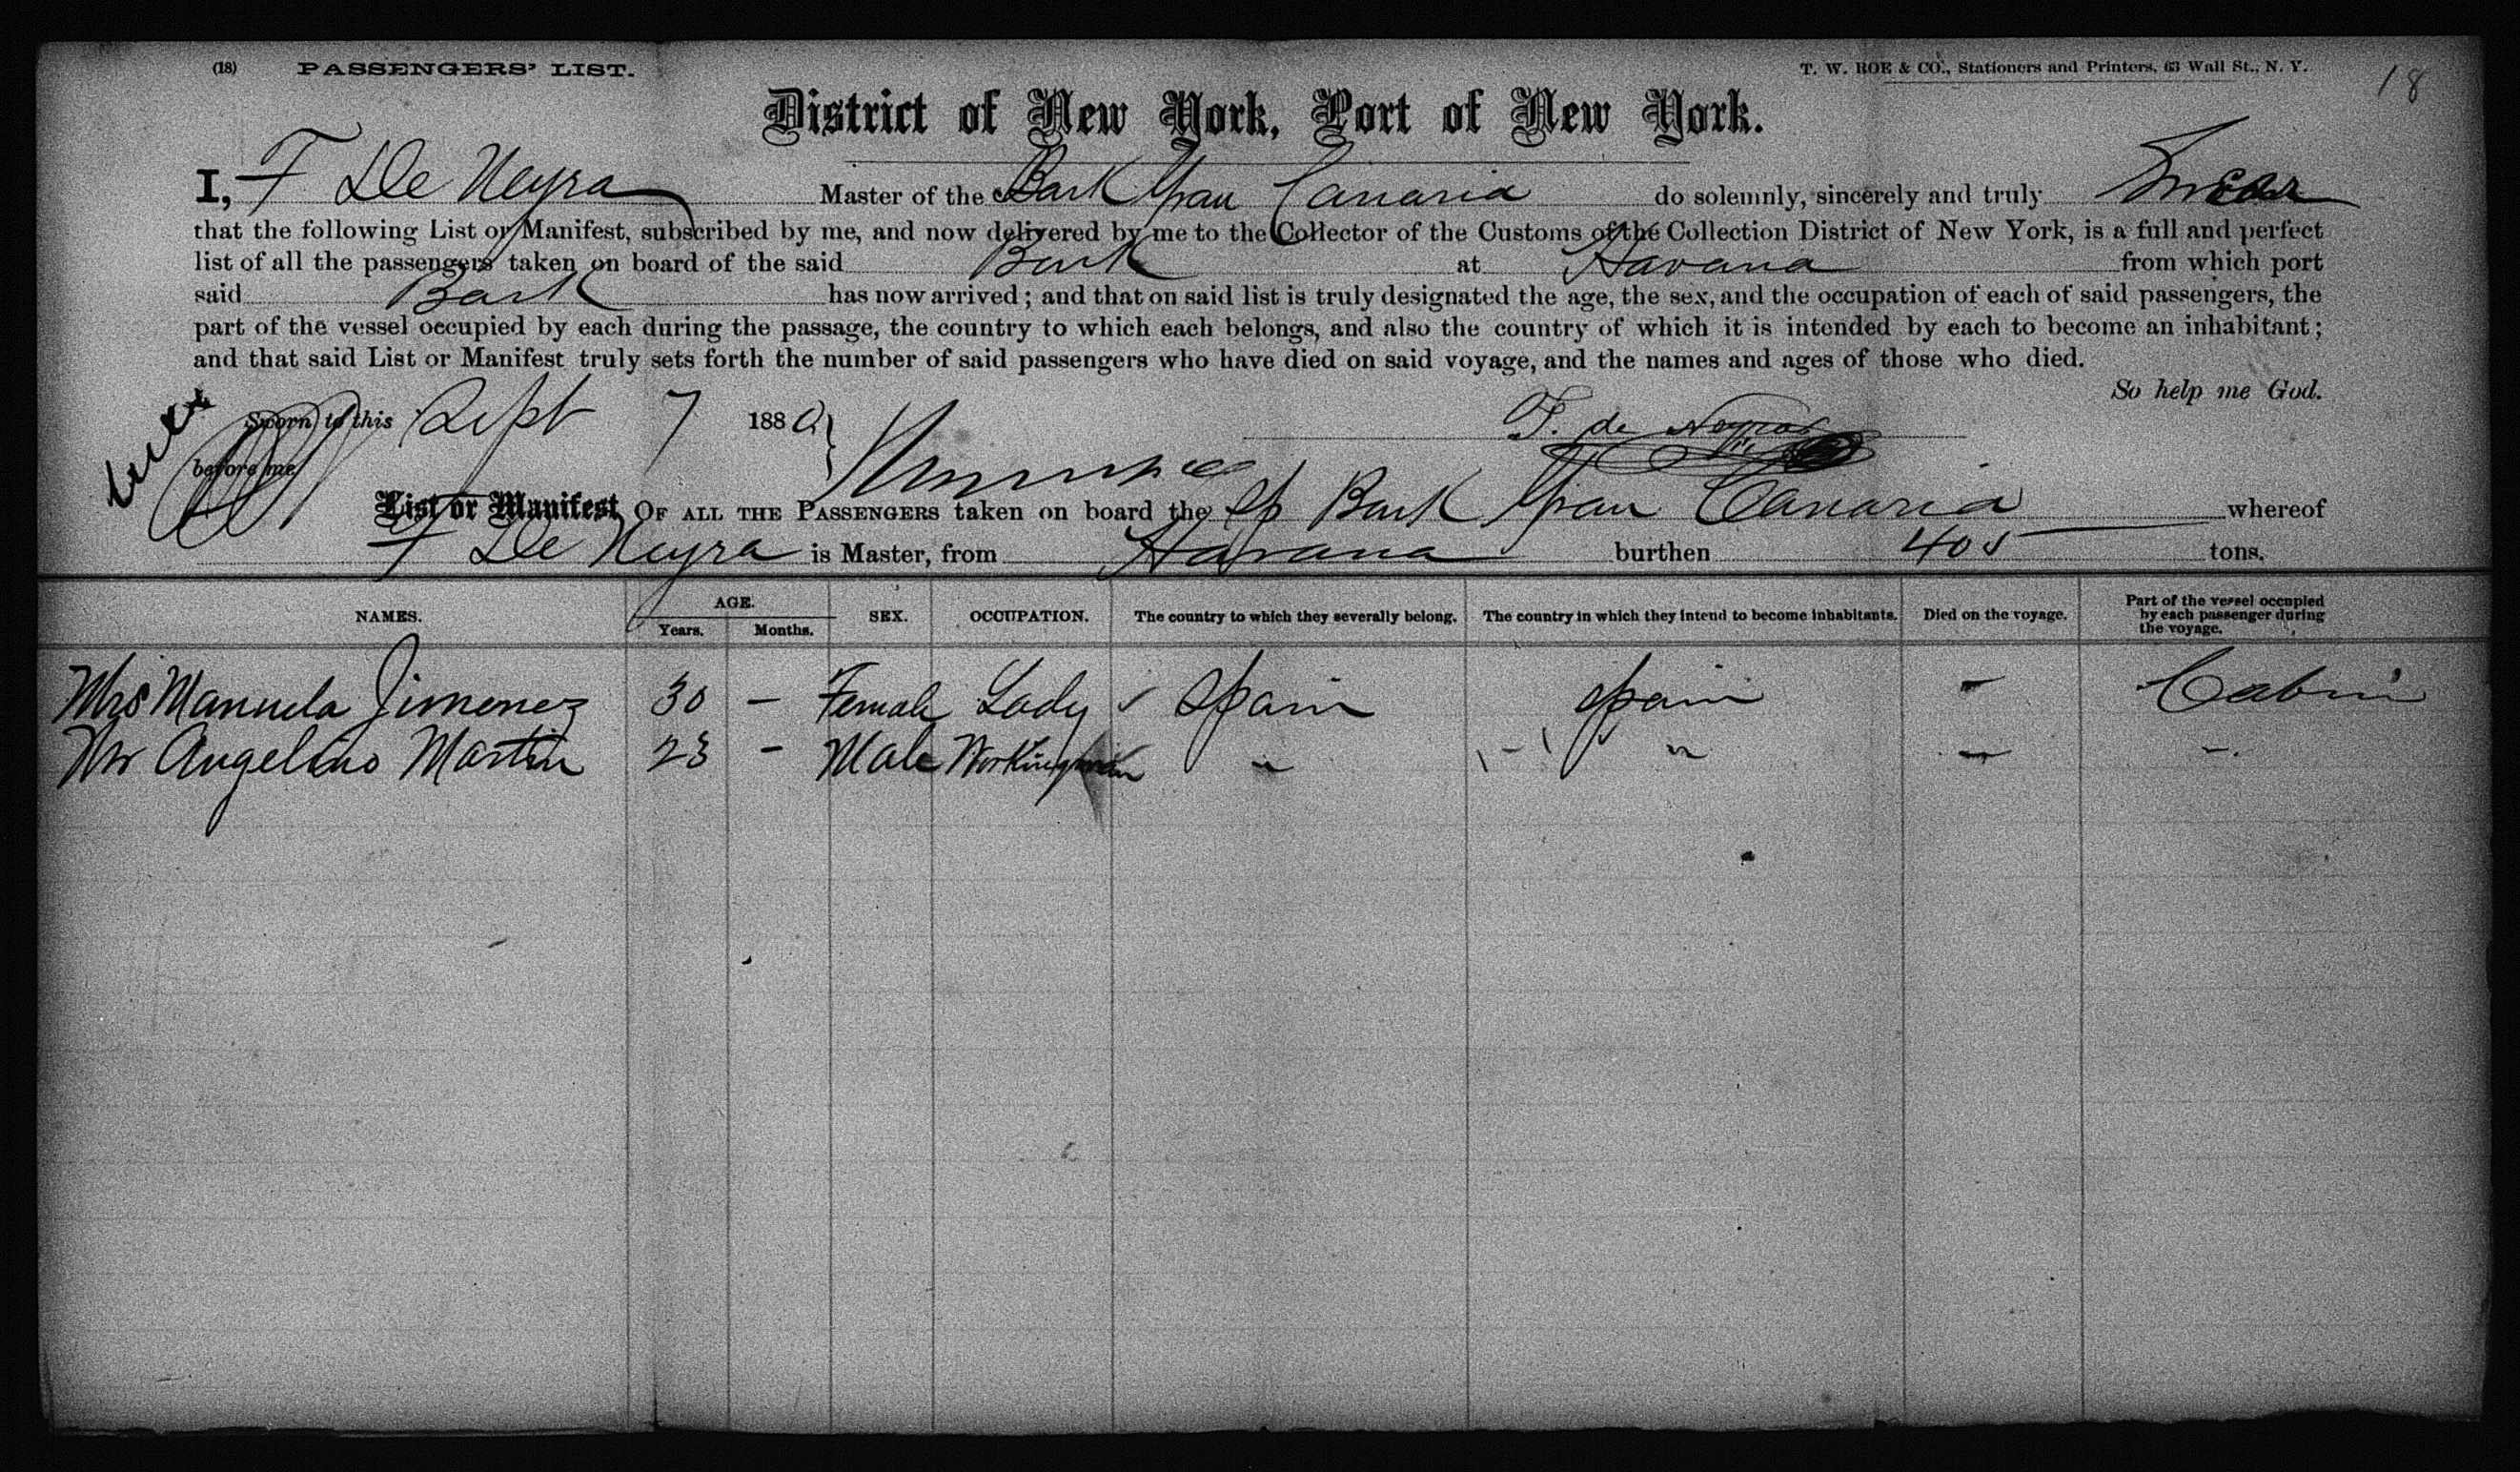 (18) PASSENGERS' LIST. T. W. ROE & CO., Stationers and Printers, 63 Wall St., N. Y. 18
District of New York, Port of New York.
I, F De Neyra Master of the Bark Gran Canaria do solemnly, sincerely and truly Swear
that the following List or Manifest, subscribed by me, and now delivered by me to the Collector of the Customs of the Collection District of New York, is a full and perfect
list of all the passengers taken on board of the said Bark at Havana from which port
said Bark has now arrived; and that on said list is truly designated the age, the sex, and the occupation of each of said passengers, the
part of the vessel occupied by each during the passage, the country to which each belongs, and also the country of which it is intended by each to become an inhabitant;
and that said List or Manifest truly sets forth the number of said passengers who have died on said voyage, and the names and ages of those who died.
So help me God.
Sworn to this Sept 7 188 F. de Neyra
before me
List or Manifest OF ALL THE PASSENGERS taken on board the Sp Bark Gran Canaria whereof
F De Neyra is Master, from Havana burthen 405 tons.
NAMES. AGE. Years. Months. SEX. OCCUPATION. The country to which they severally belong. The country in which they intend to become inhabitants. Died on the voyage. Part of the vessel occupied by each passenger during the voyage.
Mrs Manuela Jimenez 30 - Female Lady Spain Spain - Cabin
Mr Angelino Martin 23 - Male Workingman " " - "